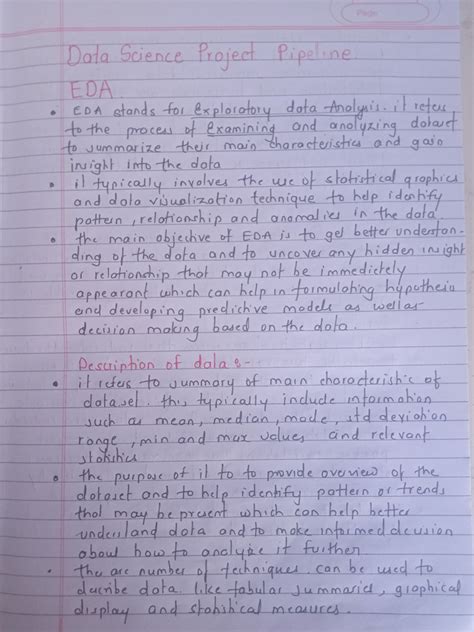 Page:
Data Science Project Pipeline
EDA
• EDA stands for Exploratory data Analysis. it refers
to the process of Examining and analyzing dataset
to summarize their main characteristics and gain
insight into the data
• it typically involves the use of statistical graphics
and data visualization technique to help identify
pattern, relationship and anomalies in the data
• the main objective of EDA is to get better understan-
ding of the data and to uncover any hidden insight
or relationship that may not be immedictely
appearant which can help in formulating hypothesis
and developing predictive models as wellas
decision making based on the data.
Description of data :-
• it refers to summary of main characteristic of
dataset. this typically include information
such as mean, median, mode, std deviation
range, min and max values and relevant
statistics
• the purpose of it to to provide overview of the
dataset and to help identify pattern or trends
that may be present which can help better
understand data and to make informed decision
about how to analyze it further
• the are number of techniques can be used to
describe data like tabular summaries, graphical
display and statistical measures.